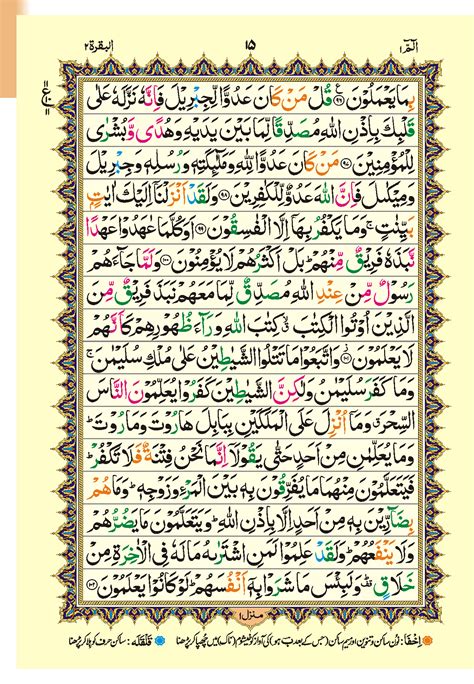 الٓمّٓ ١ ١٥ البقرة ٢
بِمَا يَعْمَلُوْنَ ۝٩٦ قُلْ مَنْ كَانَ عَدُوًّا لِّجِبْرِيْلَ فَاِنَّهٗ نَزَّلَهٗ عَلٰى
قَلْبِكَ بِاِذْنِ اللّٰهِ مُصَدِّقًا لِّمَا بَيْنَ يَدَيْهِ وَهُدًى وَّبُشْرٰى
لِلْمُؤْمِنِيْنَ ۝٩٧ مَنْ كَانَ عَدُوًّا لِّلّٰهِ وَمَلٰٓئِكَتِهٖ وَرُسُلِهٖ وَجِبْرِيْلَ
وَمِيْكٰىلَ فَاِنَّ اللّٰهَ عَدُوٌّ لِّلْكٰفِرِيْنَ ۝٩٨ وَلَقَدْ اَنْزَلْنَاۤ اِلَيْكَ اٰيٰتٍۭ
بَيِّنٰتٍ ۚ وَمَا يَكْفُرُ بِهَاۤ اِلَّا الْفٰسِقُوْنَ ۝٩٩ اَوَكُلَّمَا عٰهَدُوْا عَهْدًا
نَّبَذَهٗ فَرِيْقٌ مِّنْهُمْ ؕ بَلْ اَكْثَرُهُمْ لَا يُؤْمِنُوْنَ ۝١٠٠ وَلَمَّا جَآءَهُمْ
رَسُوْلٌ مِّنْ عِنْدِ اللّٰهِ مُصَدِّقٌ لِّمَا مَعَهُمْ نَبَذَ فَرِيْقٌ مِّنَ
الَّذِيْنَ اُوْتُوا الْكِتٰبَ ۙ كِتٰبَ اللّٰهِ وَرَآءَ ظُهُوْرِهِمْ كَاَنَّهُمْ
لَا يَعْلَمُوْنَ ۝١٠١ وَاتَّبَعُوْا مَا تَتْلُوا الشَّيٰطِيْنُ عَلٰى مُلْكِ سُلَيْمٰنَ ۚ
وَمَا كَفَرَ سُلَيْمٰنُ وَلٰكِنَّ الشَّيٰطِيْنَ كَفَرُوْا يُعَلِّمُوْنَ النَّاسَ
السِّحْرَ ۗ وَمَاۤ اُنْزِلَ عَلَى الْمَلَكَيْنِ بِبَابِلَ هَارُوْتَ وَمَارُوْتَ ؕ
وَمَا يُعَلِّمٰنِ مِنْ اَحَدٍ حَتّٰى يَقُوْلَاۤ اِنَّمَا نَحْنُ فِتْنَةٌ فَلَا تَكْفُرْ ؕ
فَيَتَعَلَّمُوْنَ مِنْهُمَا مَا يُفَرِّقُوْنَ بِهٖ بَيْنَ الْمَرْءِ وَزَوْجِهٖ ؕ وَمَا هُمْ
بِضَآرِّيْنَ بِهٖ مِنْ اَحَدٍ اِلَّا بِاِذْنِ اللّٰهِ ؕ وَيَتَعَلَّمُوْنَ مَا يَضُرُّهُمْ
وَلَا يَنْفَعُهُمْ ؕ وَلَقَدْ عَلِمُوْا لَمَنِ اشْتَرٰىهُ مَا لَهٗ فِى الْاٰخِرَةِ مِنْ
خَلَاقٍ ؕ وَلَبِئْسَ مَا شَرَوْا بِهٖۤ اَنْفُسَهُمْ ؕ لَوْ كَانُوْا يَعْلَمُوْنَ ۝١٠٢
منزل ١
اِخفَا: نون ساکن و تنوین اور میم ساکن (جس کے بعد ب ہو) کی آواز کو خیشوم (ناک) میں چھپا کر پڑھنا قَلقَلَه: ساکن حرف کو ہلا کر پڑھنا